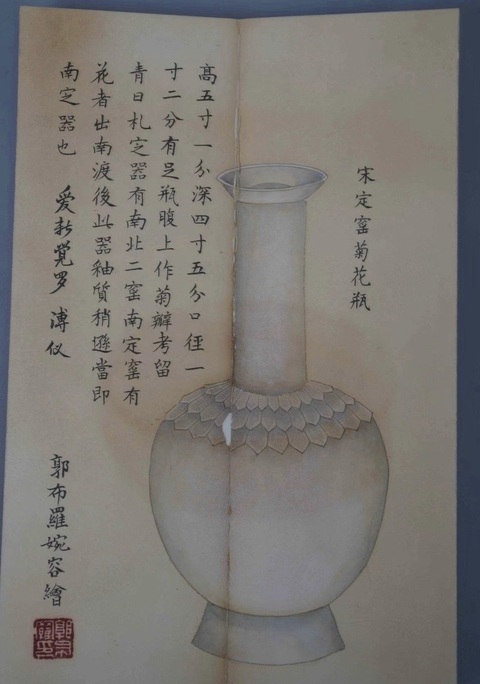 宋定窑菊花瓶
高五寸一分深四寸五分口徑一
寸二分有足瓶腹上作菊瓣考留
青日札定器有南北二窑南定窑有
花者出南渡後此器釉質稍遜當即
南定器也
爱新覺罗 溥仪
郭布羅婉容繪